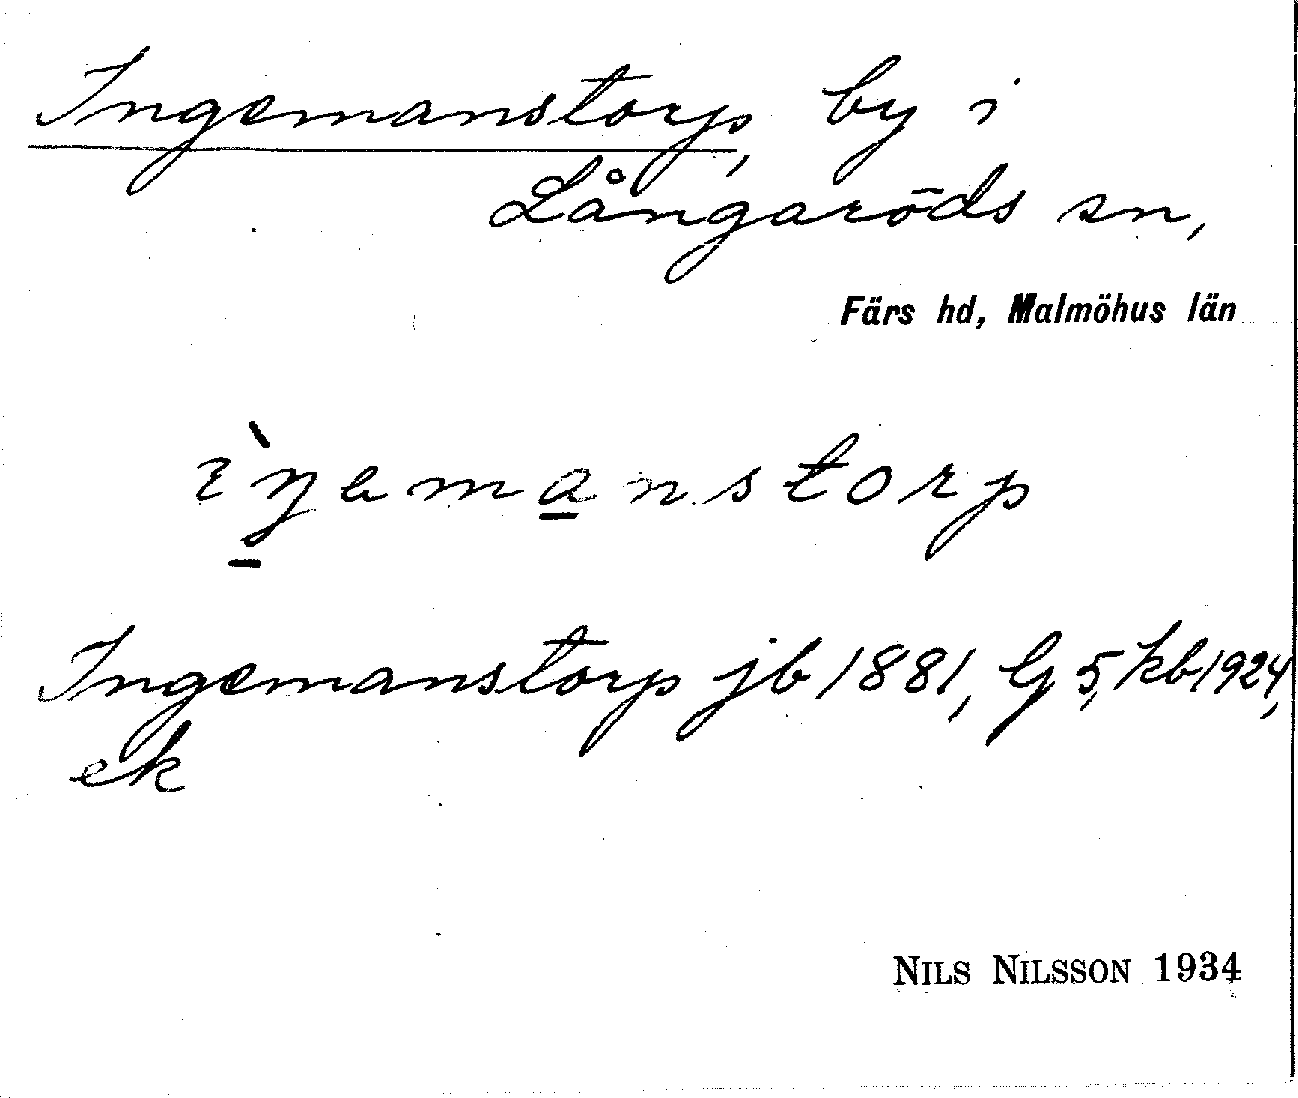 Ingemanstorp, by i
Långaröds sn,
Färs hd, Malmöhus län
ìŋemanstorp
Ingemanstorp jb 1881, G 5, kb 1924,
ek
NILS NILSSON 1934